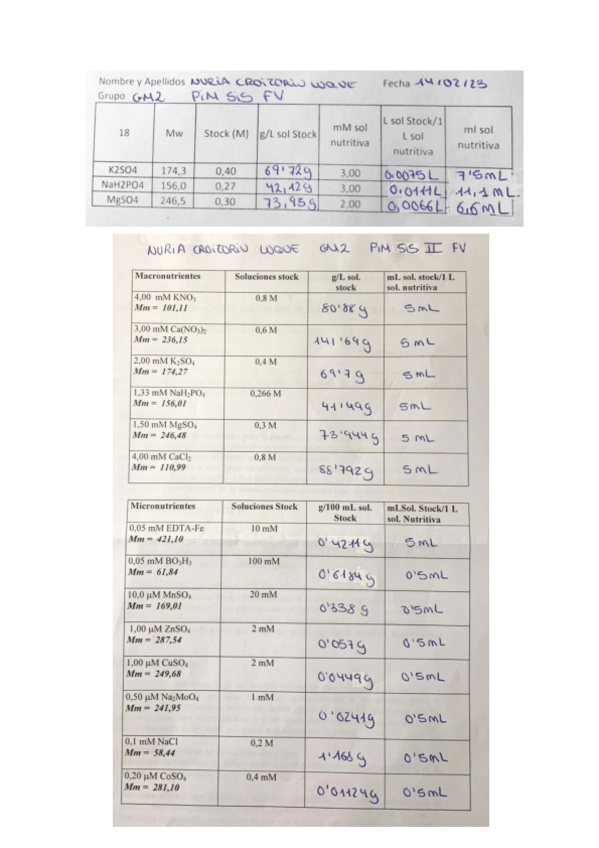 Nombre y Apellidos NURIA CROITORIU LUQUE Fecha 14/02/23
Grupo GM2 PiM SiS FV
18 Mw Stock (M) g/L sol Stock mM sol nutritiva L sol Stock/1 L sol nutritiva ml sol nutritiva
K2SO4 174,3 0,40 69'72g 3,00 0,0075L 7'5mL
NaH2PO4 156,0 0,27 42,12g 3,00 0,0111L 11,1 mL
MgSO4 246,5 0,30 73,95g 2,00 0,0066L 6,6mL
NURIA CROITORIU LUQUE GM2 PiM SiS II FV
Macronutrientes Soluciones stock g/L sol. stock mL sol. stock/1 L sol. nutritiva
4,00 mM KNO3 0,8 M 80'88g 5mL
Mm = 101,11
3,00 mM Ca(NO3)2 0,6 M 141'69g 5mL
Mm = 236,15
2,00 mM K2SO4 0,4 M 69'7g 5mL
Mm = 174,27
1,33 mM NaH2PO4 0,266 M 41'49g 5mL
Mm = 156,01
1,50 mM MgSO4 0,3 M 73'944g 5 mL
Mm = 246,48
4,00 mM CaCl2 0,8 M 88'792g 5mL
Mm = 110,99
Micronutrientes Soluciones Stock g/100 mL sol. Stock mL Sol. Stock/1 L sol. Nutritiva
0,05 mM EDTA-Fe 10 mM 0'4211g 5mL
Mm = 421,10
0,05 mM BO3H3 100 mM 0'6184g 0'5mL
Mm = 61,84
10,0 µM MnSO4 20 mM 0'338 g 0'5mL
Mm = 169,01
1,00 µM ZnSO4 2 mM 0'057g 0'5mL
Mm = 287,54
1,00 µM CuSO4 2 mM 0'0449g 0'5mL
Mm = 249,68
0,50 µM Na2MoO4 1 mM 0'0241g 0'5mL
Mm = 241,95
0,1 mM NaCl 0,2 M 1'168g 0'5mL
Mm = 58,44
0,20 µM CoSO4 0,4 mM 0'01124g 0'5mL
Mm = 281,10